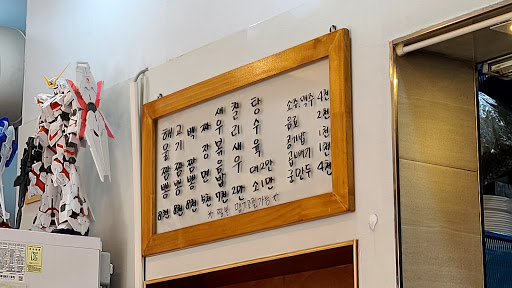 해물짬뽕 8천
고기짬뽕 8천
백짬뽕 8천
짜장면 5천
새우볶음밥 7천
칠리새우 2만
탕수육 대2만
소1만
소주,맥주 4천
음료 2천
공기밥 1천
곱빼기 1천
군만두 4천
맵기조절가능